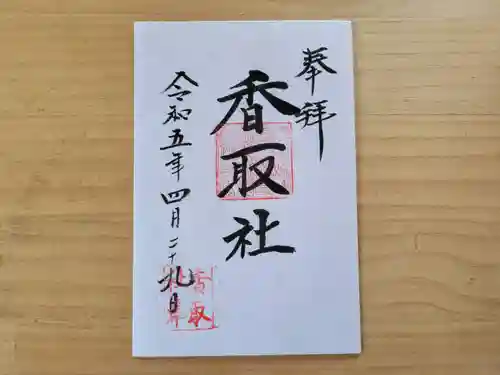 奉拝
香取社
令和五年四月二十九日